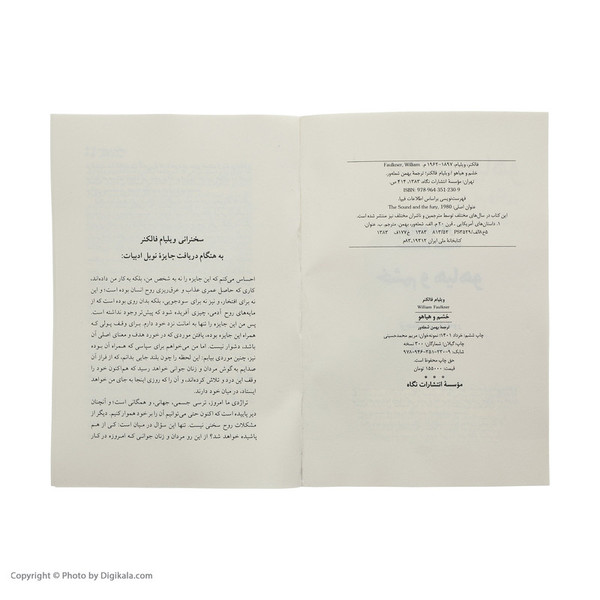 فالکنر، ویلیام، ۱۸۹۷-۱۹۶۲ م. Faulkner, William
خشم و هیاهو / ویلیام فالکنر؛ ترجمهٔ بهمن شعله‌ور.
تهران: مؤسسهٔ انتشارات نگاه، ۱۳۸۳، ۴۱۴ ص.
ISBN: 978-964-351-230-9
فهرست‌نویسی براساس اطلاعات فیپا.
عنوان اصلی: The Sound and the fury, 1980
این کتاب در سال‌های مختلف توسط مترجمین و ناشران مختلف نیز منتشر شده است.
۱. داستان‌های آمریکایی ـ قرن ۲۰ م. الف. شعله‌ور، بهمن، مترجم. ب. عنوان.
۱۳۸۳
کتابخانهٔ ملی ایران
ویلیام فالکنر
William Faulkner
خشم و هیاهو
ترجمهٔ بهمن شعله‌ور
چاپ ششم: خرداد ۱۴۰۱؛ نمونه‌خوان: مریم محمدحسینی
چاپ: گیلان؛ شمارگان: ۳۰۰ نسخه
شابک: ۹-۲۳۰-۳۵۱-۹۶۴-۹۷۸
حق چاپ محفوظ است.
قیمت: ۱۵۵۰۰۰ تومان
* * *
مؤسسهٔ انتشارات نگاه
سخنرانی ویلیام فالکنر
به هنگام دریافت جایزهٔ نوبل ادبیات:
احساس می‌کنم که این جایزه را نه به شخص من، بلکه به کار من داده‌اند،
کاری که حاصل عمری عذاب و عرق‌ریزی روح انسان بوده است؛ و این
نه برای افتخار، و نیز نه برای سودجویی، بلکه بدان روی بوده است که از
مایه‌های روح آدمی، چیزی آفریده شود که پیش‌تر وجود نداشته است.
پس من این جایزه را تنها به امانت نزد خود دارم. برای وقف پولی که
همراه این جایزه بوده، یافتن موردی که در خورد هدف و معنای اصلی آن
باشد، دشوار نیست. اما من می‌خواهم برای سپاسی که همراه آن بوده
نیز، چنین موردی بیابم: این لحظه را چون بلند جایی بدانم، که از فراز آن
صدایم به گوش مردان و زنان جوانی خواهد رسید که هم‌اکنون خود را
وقف این درد و تلاش کرده‌اند، و آن را که روزی اینجا به جای من خواهد
ایستاد، در میان خود دارند.
تراژدی ما امروز، ترسی جسمی، جهانی، و همگانی است؛ و آنچنان
دیر پاییده است که اکنون حتی می‌توانیم آن را بر خود هموار کنیم. دیگر از
مشکلات روح سخنی نیست. تنها این سؤال در میان است: کی از هم
پاشیده خواهم شد؟ از این رو مردان و زنان جوانی که امروزه در کار
Copyright © Photo by Digikala.com